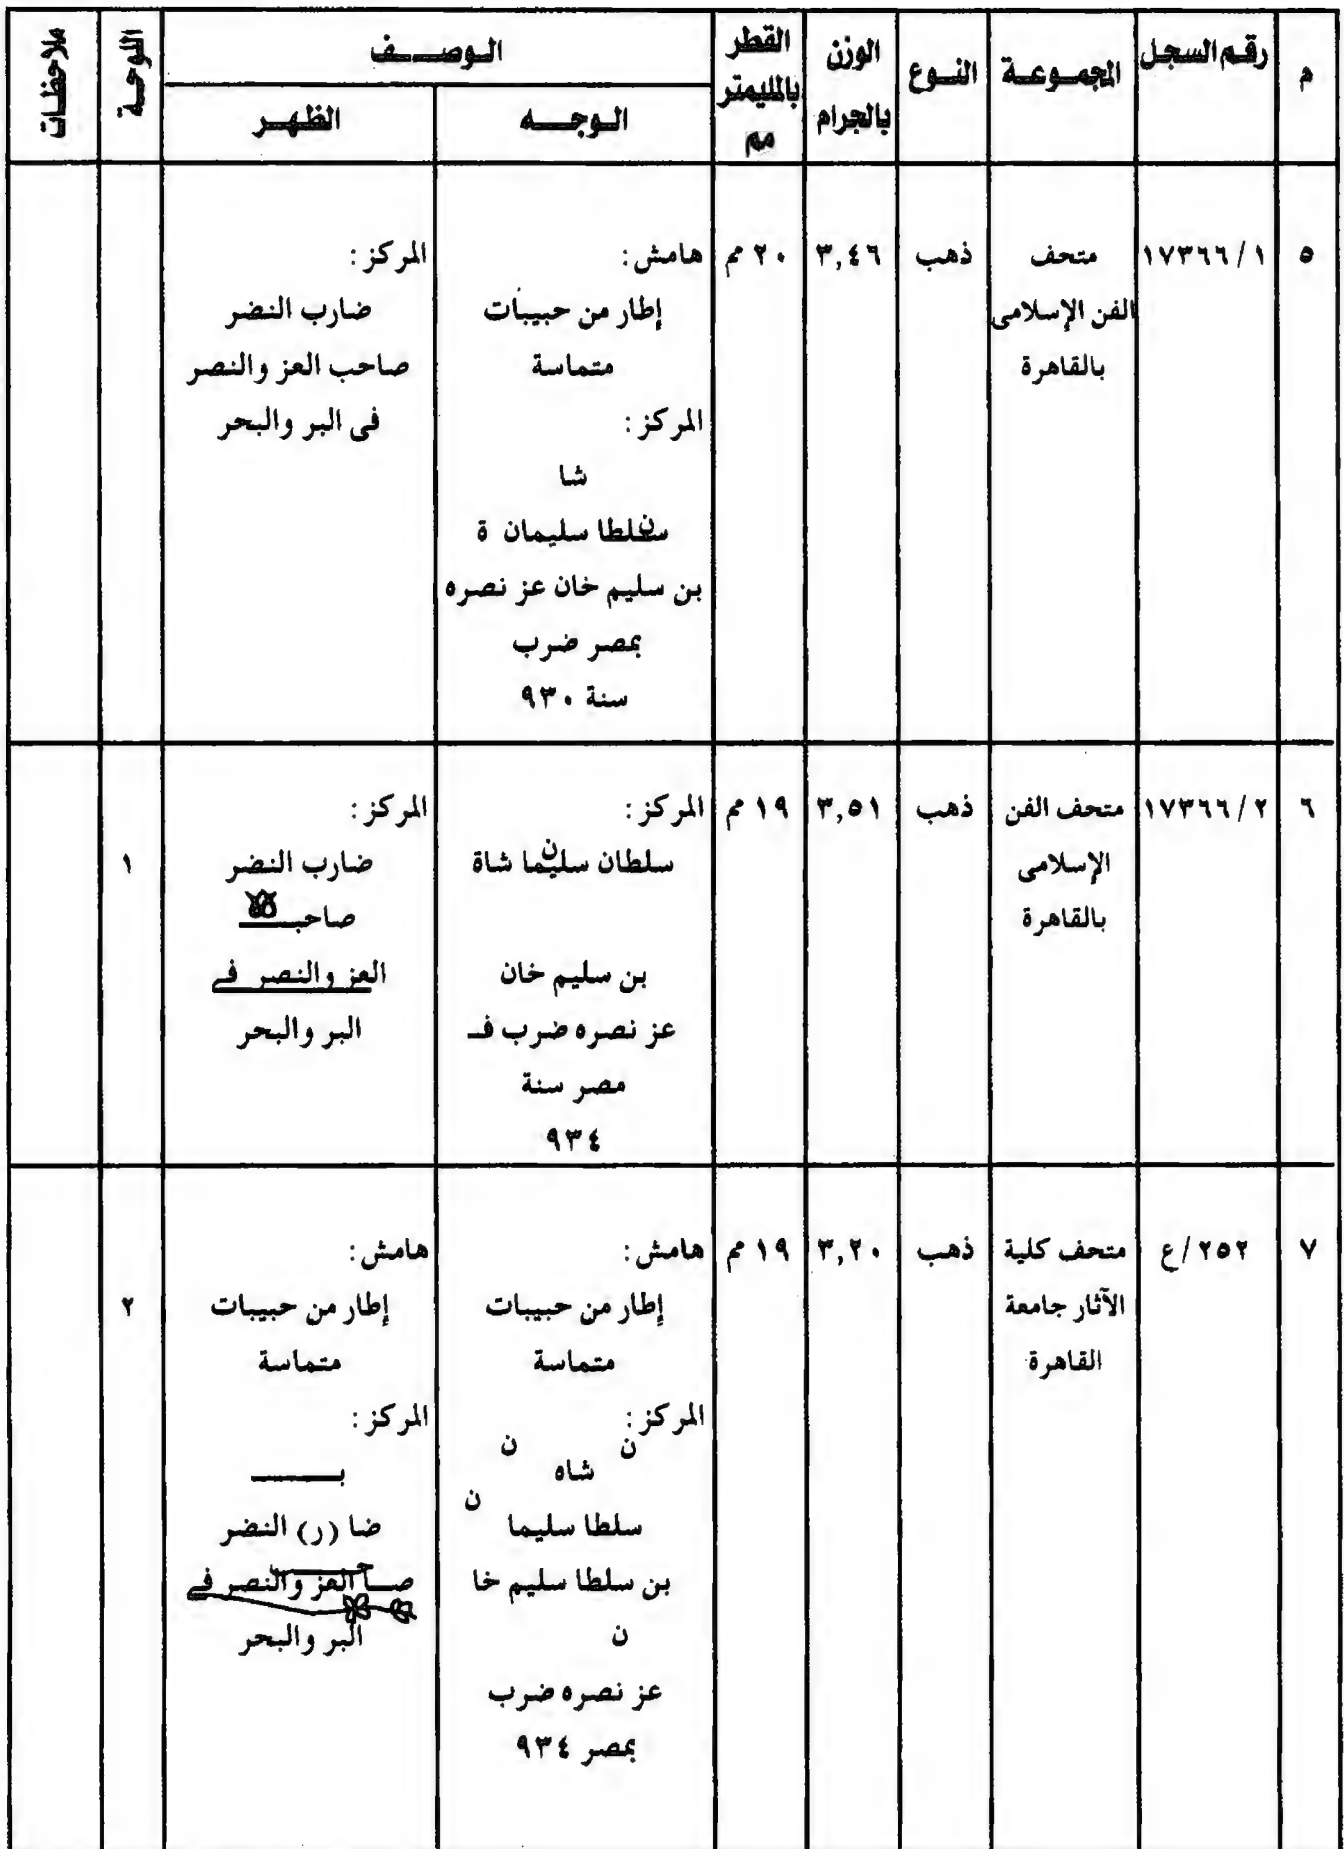 م
رقم السجل
المجموعة
النوع
الوزن
بالجرام
القطر
بالمليمتر
مم
الوصف
الوجه
الظهر
اللوحة
ملاحظات
٥
١٧٣٦٦/١
متحف
الفن الإسلامى
بالقاهرة
ذهب
٣,٤٦
٢٠ مم
هامش:
إطار من حبيبات
متماسة
المركز:
شا
سلطا ن سليمان ة
بن سليم خان عز نصره
بمصر ضرب
سنة ٩٣٠
المركز:
ضارب النضر
صاحب العز والنصر
فى البر والبحر
٦
١٧٣٦٦/٢
متحف الفن
الإسلامى
بالقاهرة
ذهب
٣,٥١
١٩ مم
المركز:
سلطان سليما ن شاة
بن سليم خان
عز نصره ضرب فـ
مصر سنة
٩٣٤
المركز:
ضارب النضر
صاحبـ
العز والنصر فے
البر والبحر
١
٧
٢٥٢/ع
متحف كلية
الآثار جامعة
القاهرة
ذهب
٣,٢٠
١٩ مم
هامش:
إطار من حبيبات
متماسة
المركز:
ن شاه ن
ن
سلطا سليما
بن سلطا سليم خا
ن
عز نصره ضرب
بمصر ٩٣٤
هامش:
إطار من حبيبات
متماسة
المركز:
بـ
ضا (ر) النضر
صا حـ العز والنصر فے
البر والبحر
٢